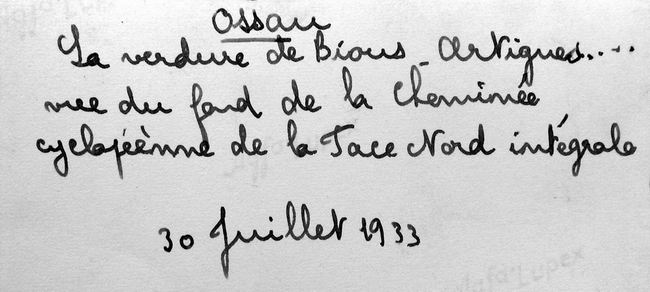 Ossau
La verdure de Bious-Artigues....
vue du fond de la Cheminée
cyclopéènne de la Face Nord intégrale
30 Juillet 1933